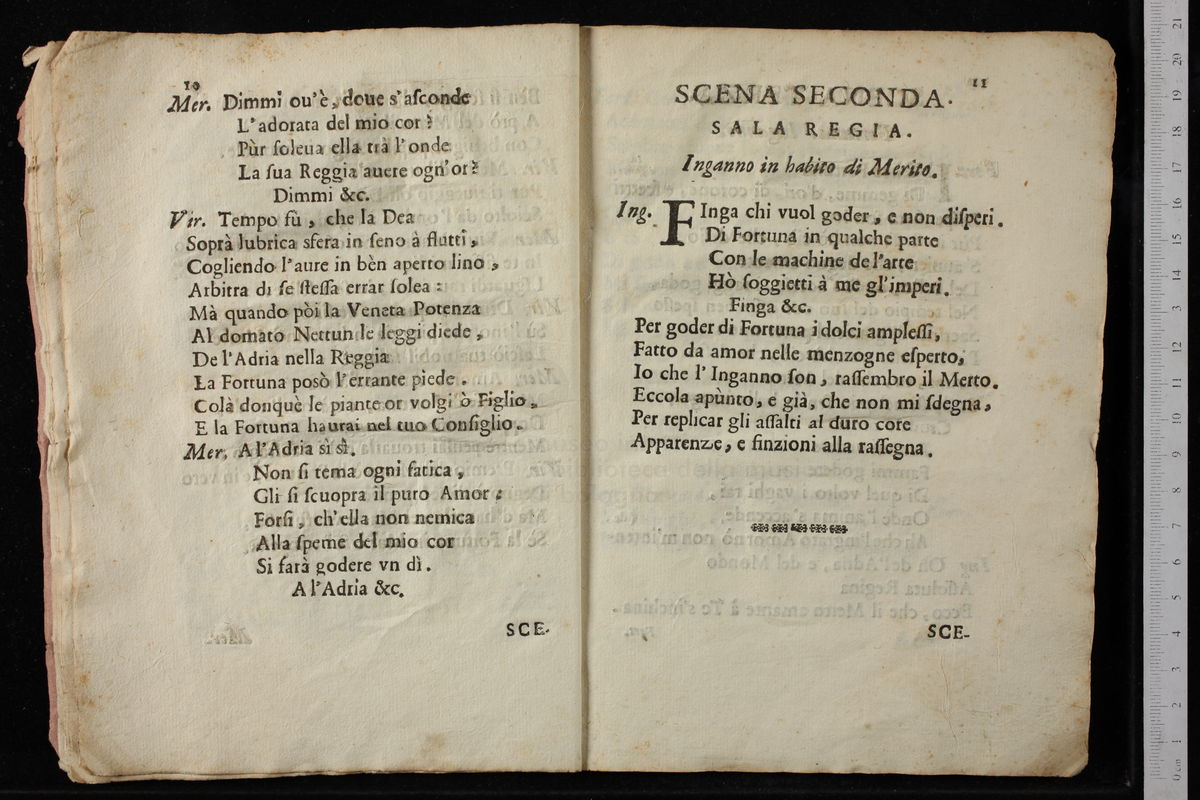 10
Mer. Dimmi ou'è, doue s'aſconde
L'adorata del mio cor?
Pùr ſoleua ella trà l'onde
La ſua Reggia auere ogn'or?
Dimmi &c.
Vir. Tempo fù, che la Dea
Soprà lubrica sfera in ſeno à flutti,
Cogliendo l'aure in bèn aperto lino,
Arbitra di ſe ſteſſa errar ſolea:
Mà quando pòi la Veneta Potenza
Al domato Nettun le leggi diede,
De l'Adria nella Reggia
La Fortuna posò l'errante piede.
Colà donquè le piante or volgi ò Figlio,
E la Fortuna haurai nel tuo Conſiglio.
Mer. A l'Adria sì sì.
Non ſi tema ogni fatica,
Gli ſi ſcuopra il puro Amor:
Forſi, ch'ella non nemica
Alla ſpeme del mio cor
Si farà godere vn dì.
A l'Adria &c.
SCE-
11
SCENA SECONDA.
SALA REGIA.
Inganno in habito di Merito.
Ing. FInga chi vuol goder, e non diſperi.
Di Fortuna in qualche parte
Con le machine de l'arte
Hò ſoggietti à me gl'imperi.
Finga &c.
Per goder di Fortuna i dolci ampleſſi,
Fatto da amor nelle menzogne eſperto,
Io che l'Inganno ſon, raſſembro il Merto.
Eccola apùnto, e già, che non mi ſdegna,
Per replicar gli aſſalti al duro core
Apparenze, e finzioni alla raſſegna.
SCE-